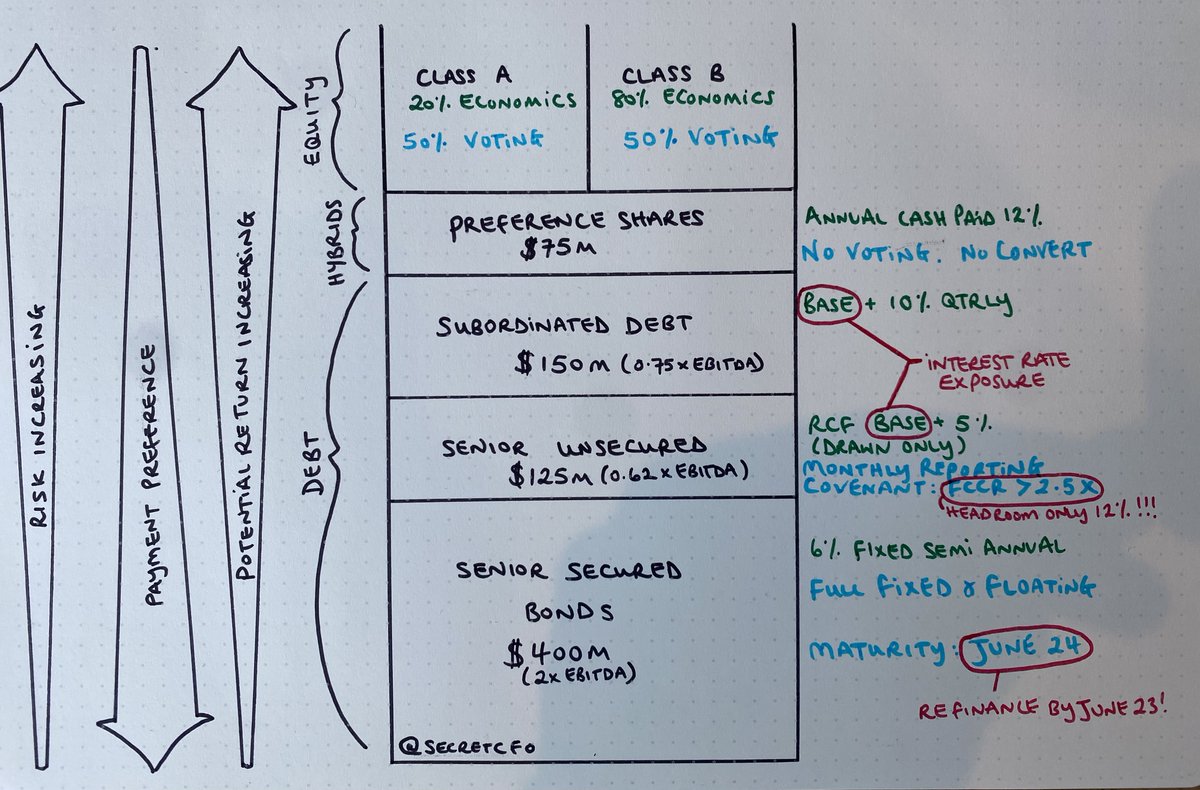 RISK INCREASING
PAYMENT PREFERENCE
POTENTIAL RETURN INCREASING
EQUITY
HYBRIDS
DEBT
CLASS A
20% ECONOMICS
50% VOTING
CLASS B
80% ECONOMICS
50% VOTING
PREFERENCE SHARES
$75M
ANNUAL CASH PAID 12%
NO VOTING. NO CONVERT
SUBORDINATED DEBT
$150M (0.75 x EBITDA)
BASE + 10% QTRLY
INTEREST RATE
EXPOSURE
SENIOR UNSECURED
$125M (0.62 x EBITDA)
RCF BASE + 5%
(DRAWN ONLY)
MONTHLY REPORTING
COVENANT: FCCR > 2.5X
HEADROOM ONLY 12% !!!
SENIOR SECURED
BONDS
$400M
(2x EBITDA)
6% FIXED SEMI ANNUAL
FULL FIXED & FLOATING
MATURITY: JUNE 24
REFINANCE BY JUNE 23!
@SECRETCFO